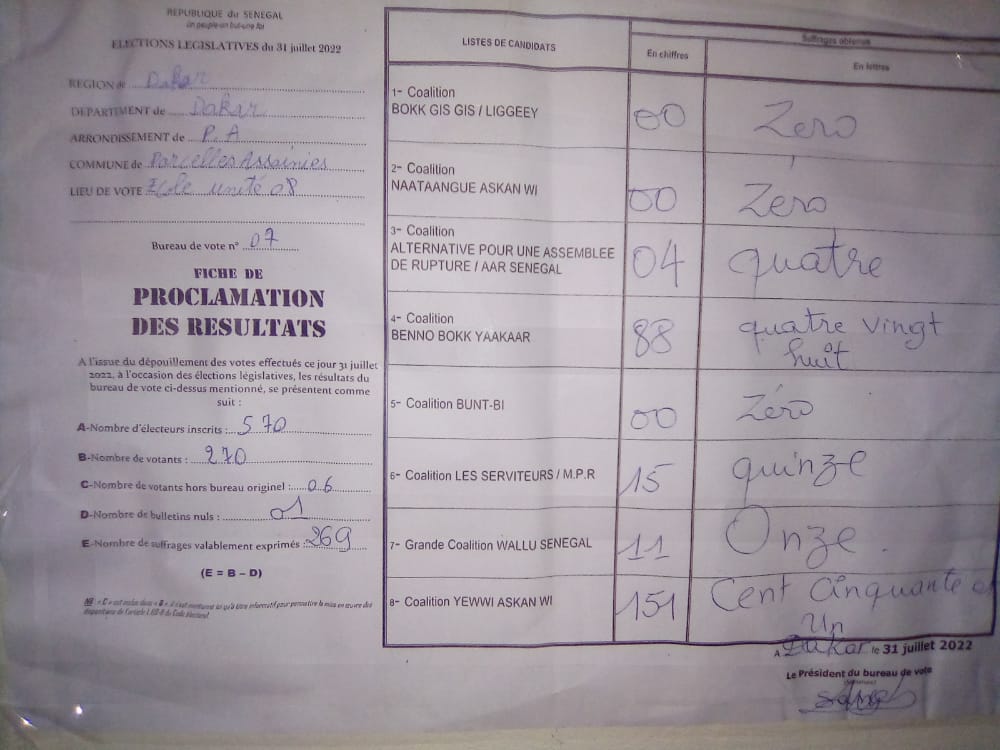 REPUBLIQUE du SENEGAL
Un peuple-un but-une foi
ELECTIONS LEGISLATIVES du 31 juillet 2022
REGION de Dakar
DEPARTMENT de Dakar
ARRONDISSEMENT de P.A
COMMUNE de Parcelles Assainies
LIEU DE VOTE Ecole unité 08
Bureau de vote n° 07
FICHE DE
PROCLAMATION
DES RESULTATS
A l'issue du dépouillement des votes effectués ce jour 31 juillet
2022, à l'occasion des élections législatives, les résultats du
bureau de vote ci-dessus mentionné, se présentent comme
suit :
A-Nombre d'électeurs inscrits : 570
B-Nombre de votants : 270
C-Nombre de votants hors bureau originel : 06
D-Nombre de bulletins nuls : 01
E-Nombre de suffrages valablement exprimés : 269
(E = B – D)
NB : « C » est inclus dans « B »
LISTES DE CANDIDATS
Suffrages obtenus
En chiffres
En lettres
1- Coalition
BOKK GIS GIS / LIGGEEY
00
Zero
2- Coalition
NAATAANGUE ASKAN WI
00
Zéro
3- Coalition
ALTERNATIVE POUR UNE ASSEMBLEE
DE RUPTURE / AAR SENEGAL
04
quatre
4- Coalition
BENNO BOKK YAAKAAR
88
quatre vingt
huit
5- Coalition BUNT-BI
00
Zéro
6- Coalition LES SERVITEURS / M.P.R
15
quinze
7- Grande Coalition WALLU SENEGAL
11
Onze.
8- Coalition YEWWI ASKAN WI
151
Cent Cinquante et
Un
A Dakar le 31 juillet 2022
Le Président du bureau de vote
(Signature)